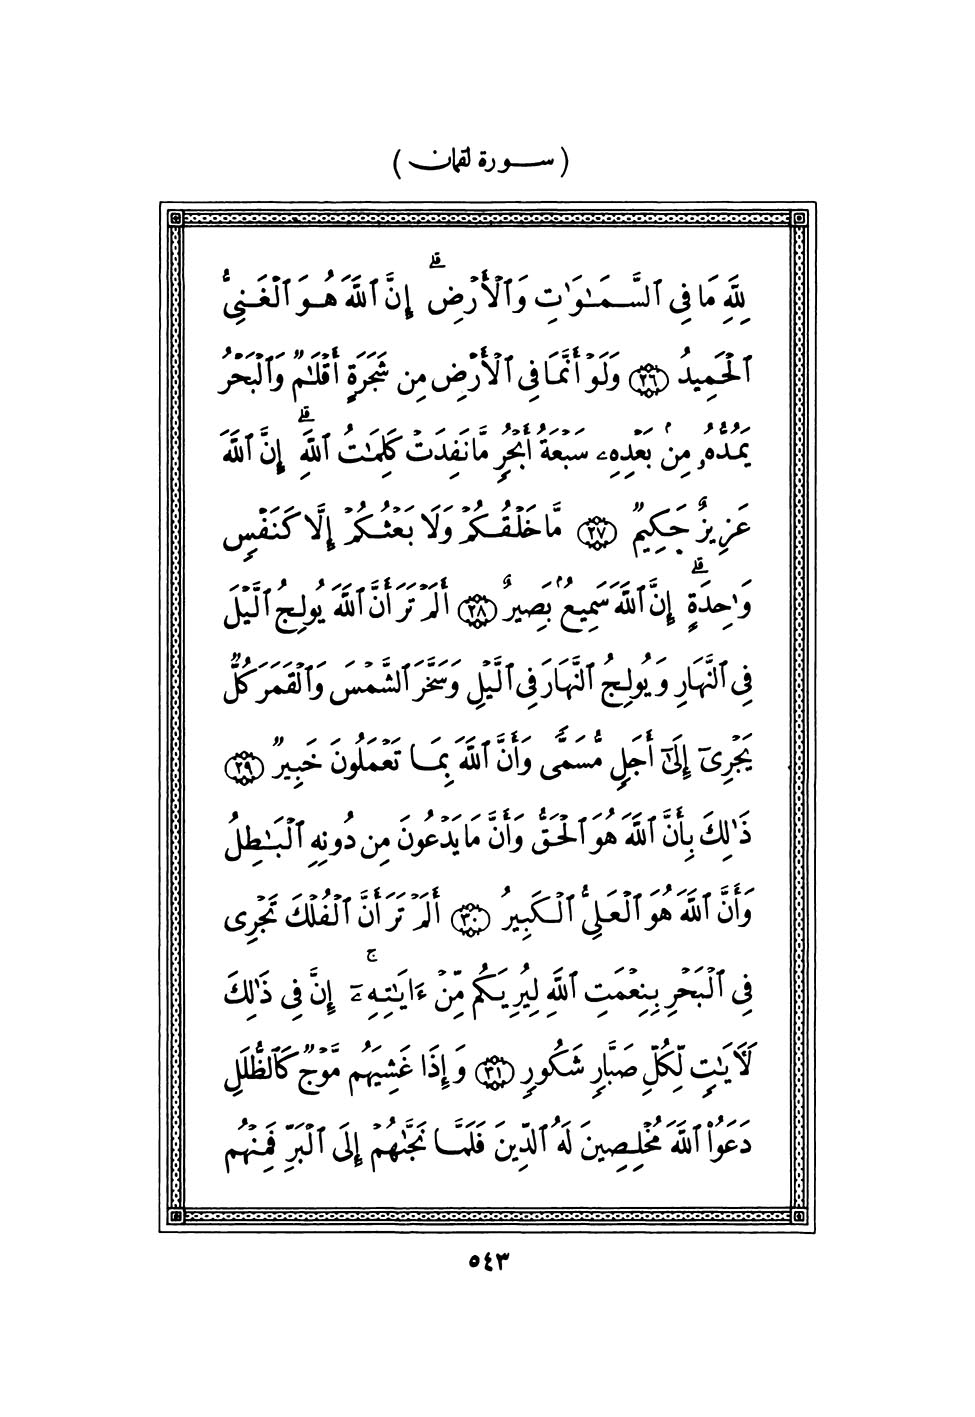 ( سورة لقمان )
لِلَّهِ مَا فِى ٱلسَّمَـٰوَٰتِ وَٱلْأَرْضِ ۚ إِنَّ ٱللَّهَ هُوَ ٱلْغَنِىُّ
ٱلْحَمِيدُ ﴿٢٦﴾ وَلَوْ أَنَّمَا فِى ٱلْأَرْضِ مِن شَجَرَةٍ أَقْلَـٰمٌ وَٱلْبَحْرُ
يَمُدُّهُۥ مِنۢ بَعْدِهِۦ سَبْعَةُ أَبْحُرٍ مَّا نَفِدَتْ كَلِمَـٰتُ ٱللَّهِ ۗ إِنَّ ٱللَّهَ
عَزِيزٌ حَكِيمٌ ﴿٢٧﴾ مَّا خَلْقُكُمْ وَلَا بَعْثُكُمْ إِلَّا كَنَفْسٍ
وَٰحِدَةٍ ۗ إِنَّ ٱللَّهَ سَمِيعُۢ بَصِيرٌ ﴿٢٨﴾ أَلَمْ تَرَ أَنَّ ٱللَّهَ يُولِجُ ٱلَّيْلَ
فِى ٱلنَّهَارِ وَيُولِجُ ٱلنَّهَارَ فِى ٱلَّيْلِ وَسَخَّرَ ٱلشَّمْسَ وَٱلْقَمَرَ كُلٌّ
يَجْرِىٓ إِلَىٰٓ أَجَلٍ مُّسَمًّى وَأَنَّ ٱللَّهَ بِمَا تَعْمَلُونَ خَبِيرٌ ﴿٢٩﴾
ذَٰلِكَ بِأَنَّ ٱللَّهَ هُوَ ٱلْحَقُّ وَأَنَّ مَا يَدْعُونَ مِن دُونِهِ ٱلْبَـٰطِلُ
وَأَنَّ ٱللَّهَ هُوَ ٱلْعَلِىُّ ٱلْكَبِيرُ ﴿٣٠﴾ أَلَمْ تَرَ أَنَّ ٱلْفُلْكَ تَجْرِى
فِى ٱلْبَحْرِ بِنِعْمَتِ ٱللَّهِ لِيُرِيَكُم مِّنْ ءَايَـٰتِهِۦٓ ۚ إِنَّ فِى ذَٰلِكَ
لَـَٔايَـٰتٍ لِّكُلِّ صَبَّارٍ شَكُورٍ ﴿٣١﴾ وَإِذَا غَشِيَهُم مَّوْجٌ كَٱلظُّلَلِ
دَعَوُا۟ ٱللَّهَ مُخْلِصِينَ لَهُ ٱلدِّينَ فَلَمَّا نَجَّىٰهُمْ إِلَى ٱلْبَرِّ فَمِنْهُم
٥٤٣